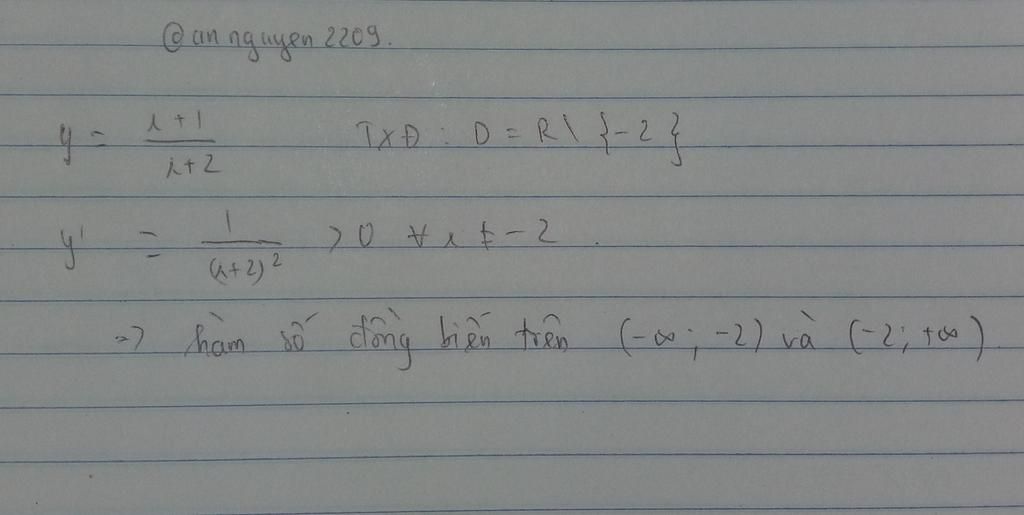 @annguyen2209.
y = x+1 / x+2 TXĐ: D = R \ {-2}
y' = 1 / (x+2)² > 0 ∀x ≠ -2.
=> hàm số đồng biến trên (-∞; -2) và (-2; +∞)